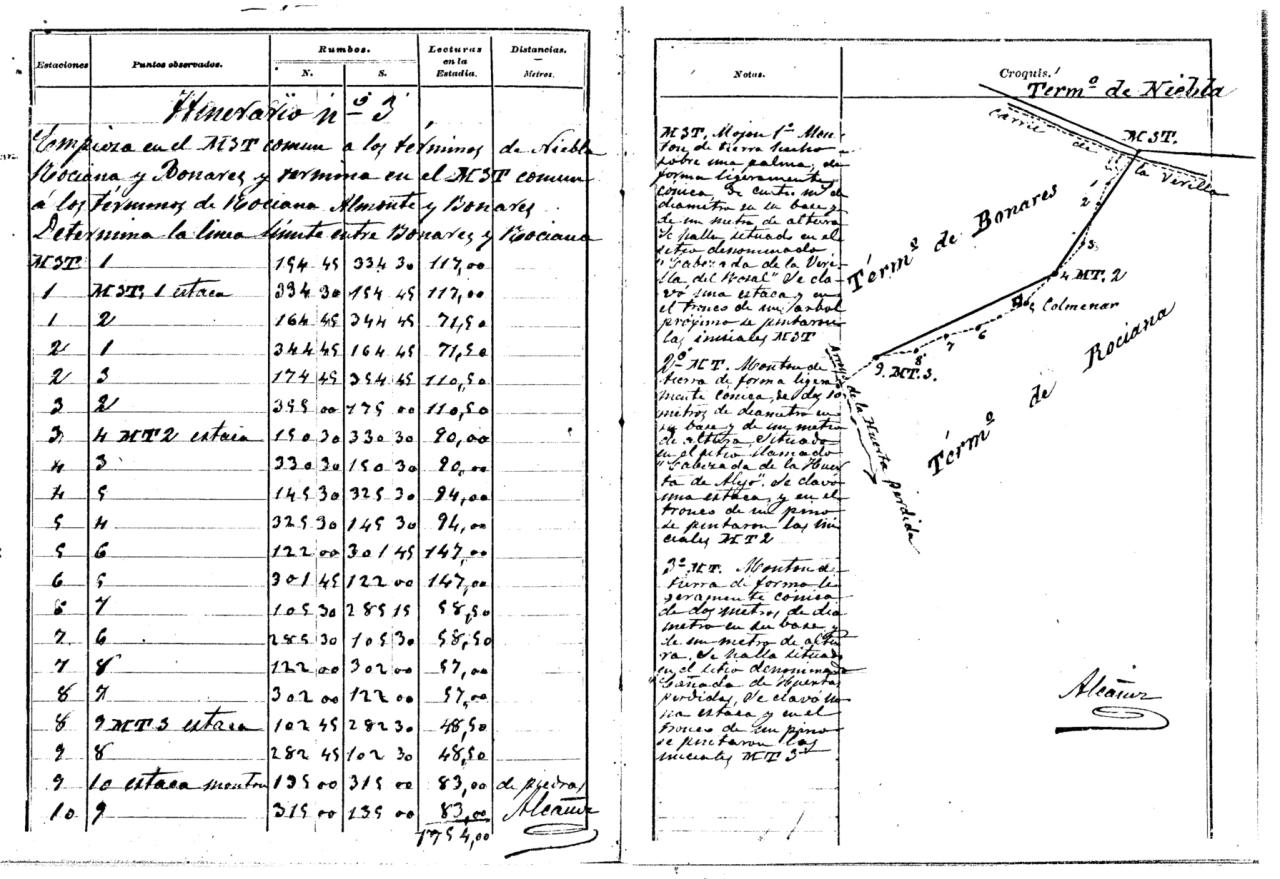 Estaciones Puntos observados. Rumbos. N. S. Lecturas en la Estadia. Distancias. Metros.
Itinerario nº 3
Empieza en el M3T comun a los términos de Niebla
Rociana y Bonares y termina en el M3T comun
á los términos de Rociana Almonte y Bonares
Determina la linea límite entre Bonares y Rociana
M3T 1 154 45 334 30 117,00
1 M3T, 1 estaca 334 30 154 45 117,00
1 2 164 45 344 45 71,50
2 1 344 45 164 45 71,50
2 3 174 45 354 45 110,50
3 2 355 00 175 00 110,50
3 4 MT2 estaca 150 30 330 30 90,00
4 3 330 30 150 30 90,00
4 5 145 30 325 30 94,00
5 4 325 30 145 30 94,00
5 6 122 00 301 45 147,00
6 5 301 45 122 00 147,00
6 7 105 30 285 15 58,50
7 6 285 30 105 30 58,50
7 8 122 00 302 00 57,00
8 7 302 00 122 00 57,00
8 9 MT3 estaca 102 45 282 30 48,50
9 8 282 45 102 30 48,50
9 10 estaca monton 135 00 315 00 83,00 de piedras
10 9 315 00 135 00 83,00 Alcáñiz
1754,00
Notas.
M3T. Mojon 1º Mon-
ton de tierra hecho
sobre una palma, de
forma ligeramente
conica de cuatro m. de
diametro en su base y
de un metro de altura
Se halla situado en el
sitio denominado
"Cabezada de la Veri-
lla del Rosal" Se cla-
vó una estaca y en
el tronco de un arbol
próximo se pintaron
las iniciales M3T
2º MT. Monton de
tierra de forma ligera-
mente cónica, de dos
metros de diametro en
su base y de un metro
de altura. Situado
en el sitio llamado
"Cabezada de la Huer-
ta de Alejo". Se clavó
una estaca, y en el
tronco de un pino
se pintaron las ini-
ciales MT2
3º MT. Monton de
tierra de forma li-
geramente cónica
de dos metros, de dia
metro en su base y
de un metro de altu-
ra. Se halla situado
en el sitio denominado
Cañada de Huerta
perdida, Se clavó u-
na estaca y en el
tronco de un pino
se pintaron las
iniciales MT3
Croquis.
Térmº de Niebla
Carril de la Verilla
M3T.
1
2
3
4 MT. 2
5 Colmenar
6
7
8
9. MT. 3.
Térmº de Bonares
Térmº de Rociana
Arroyo de la Huerta perdida
Alcáñiz